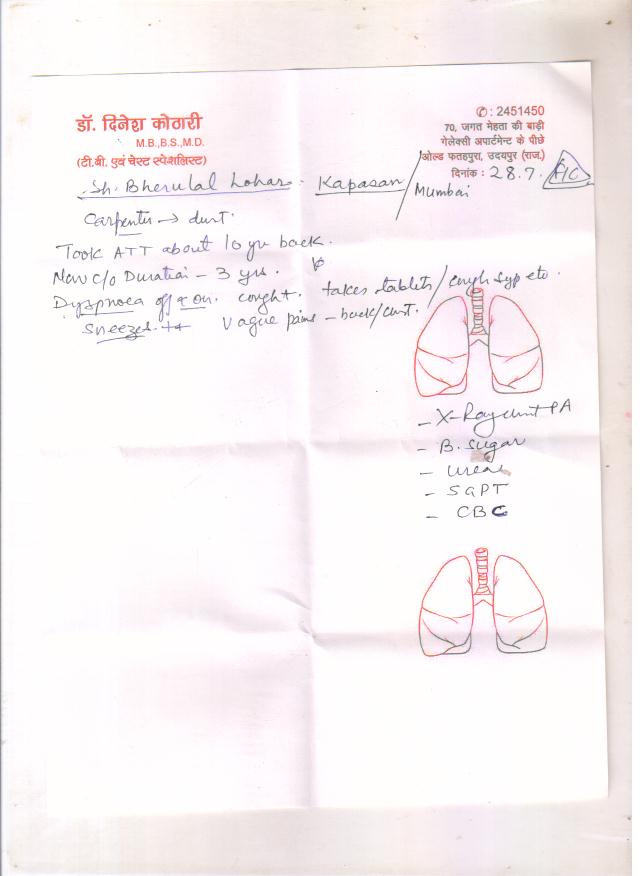 डॉ. दिनेश कोठारी
M.B.,B.S.,M.D.
(टी.बी. एवं चेस्ट स्पेशलिस्ट)
✆ : 2451450
70, जगत मेहता की बाड़ी
गेलेक्सी अपार्टमेन्ट के पीछे
ओल्ड फतहपुरा, उदयपुर (राज.)
दिनांक : 28.7.
Sh. Bherulal Lohar. Kapasan/
Mumbai
Carpenter → dust.
Took ATT about 10 yr back.
Now c/o Duration - 3 yrs.
Dyspnoea off & on. cought. takes tablets/cough syp etc.
Sneezes ++ Vague pains - back/chest.
- X-Ray chest PA
- B. Sugar
- Urea
- SGPT
- CBC